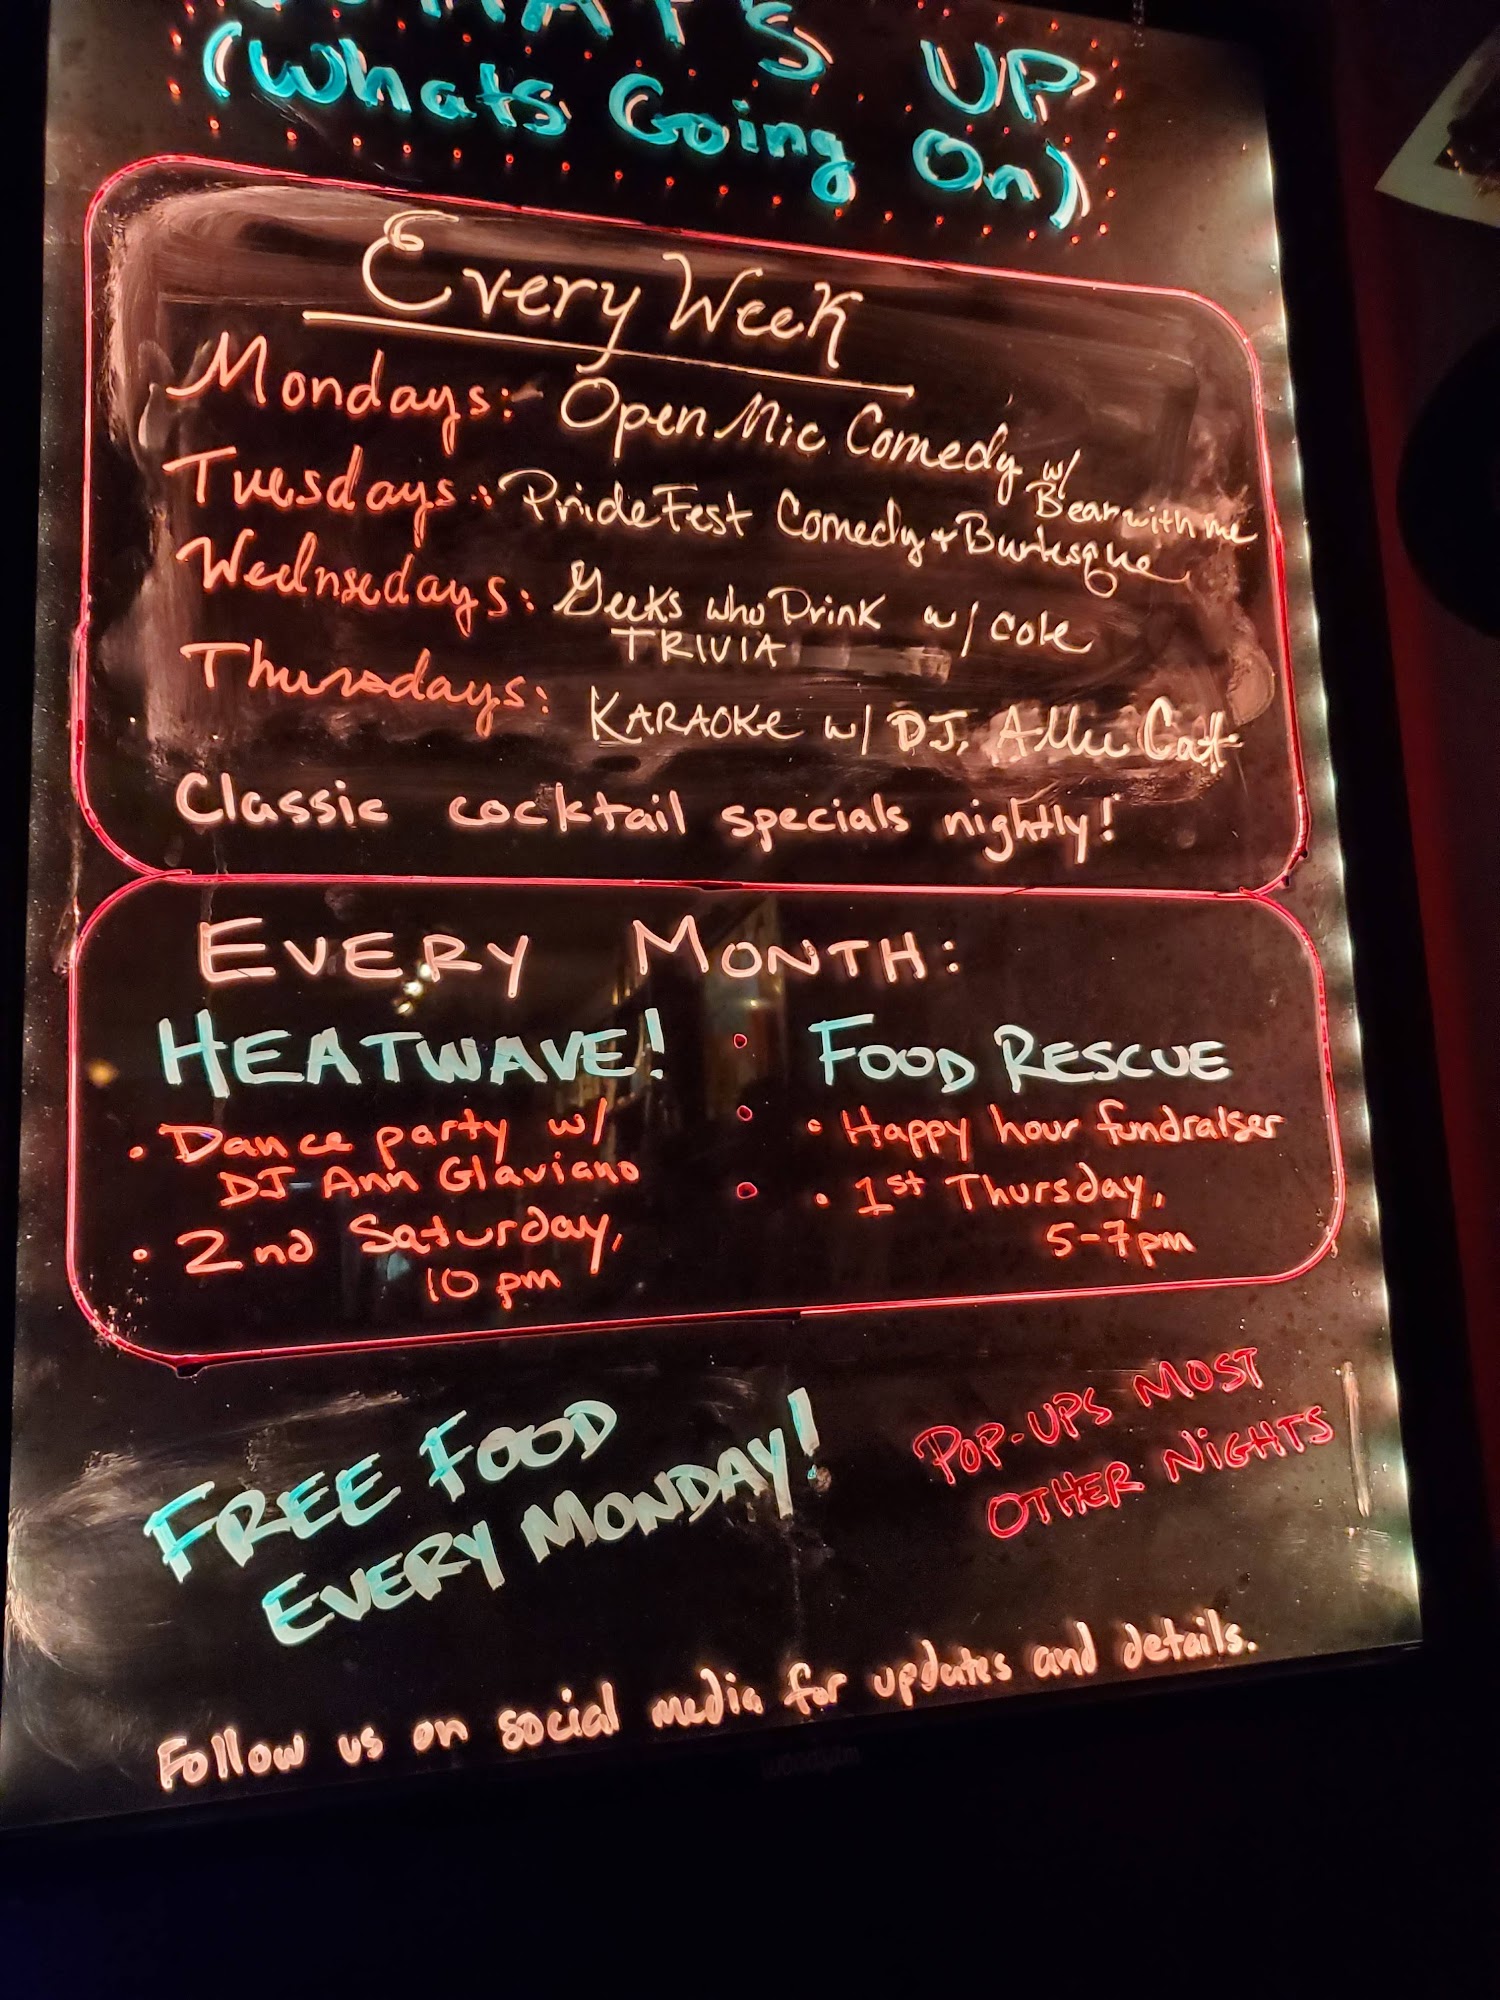 WHAT'S UP
(Whats Going On)
Every Week
Mondays: Open Mic Comedy w/
Bear with me
Tuesdays: PrideFest Comedy + Burlesque
Wednsedays: Geeks who Drink w/ Cole
TRIVIA
Thursdays: KARAOKe w/ DJ, Allie Catt
Classic cocktail specials nightly!
EVERY MONTH:
HEATWAVE!
• Dance party w/
DJ Ann Glaviano
• 2nd Saturday,
10 pm
FOOD RESCUE
• Happy hour fundraiser
• 1st Thursday,
5-7pm
FREE FOOD
EVERY MONDAY!
POP-UPS MOST
OTHER NIGHTS
Follow us on social media for updates and details.